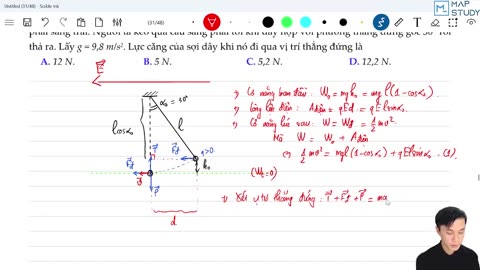 Untitled (31/48) - Scrble Ink
(31/48)
MAP STUDY
phải sang trái. Người ta kéo quả cầu sang phải tới khi dây hợp với phương thẳng đứng góc 30° rồi
thả ra. Lấy g = 9,8 m/s². Lực căng của sợi dây khi nó đi qua vị trí thẳng đứng là
A. 12 N. B. 5 N. C. 5,2 N. D. 12,2 N.
E
α₀ = 30°
l
lcosα₀
q>0
T
Fđ
P
h₀
(Wt=0)
d
+) Cơ năng ban đầu: W₀ = mgh₀ = mgl(1-cosα₀)
+) Công lực điện: Ađiện = qEd = qElsinα₀
+) Cơ năng lúc sau: W = Wđ = 1/2 mv².
Mà W = W₀ + Ađiện
⇔ 1/2 mv² = mgl(1-cosα₀) + qElsinα₀ (1).
+) Xét vị trí thẳng đứng: T + Fđ + P = ma